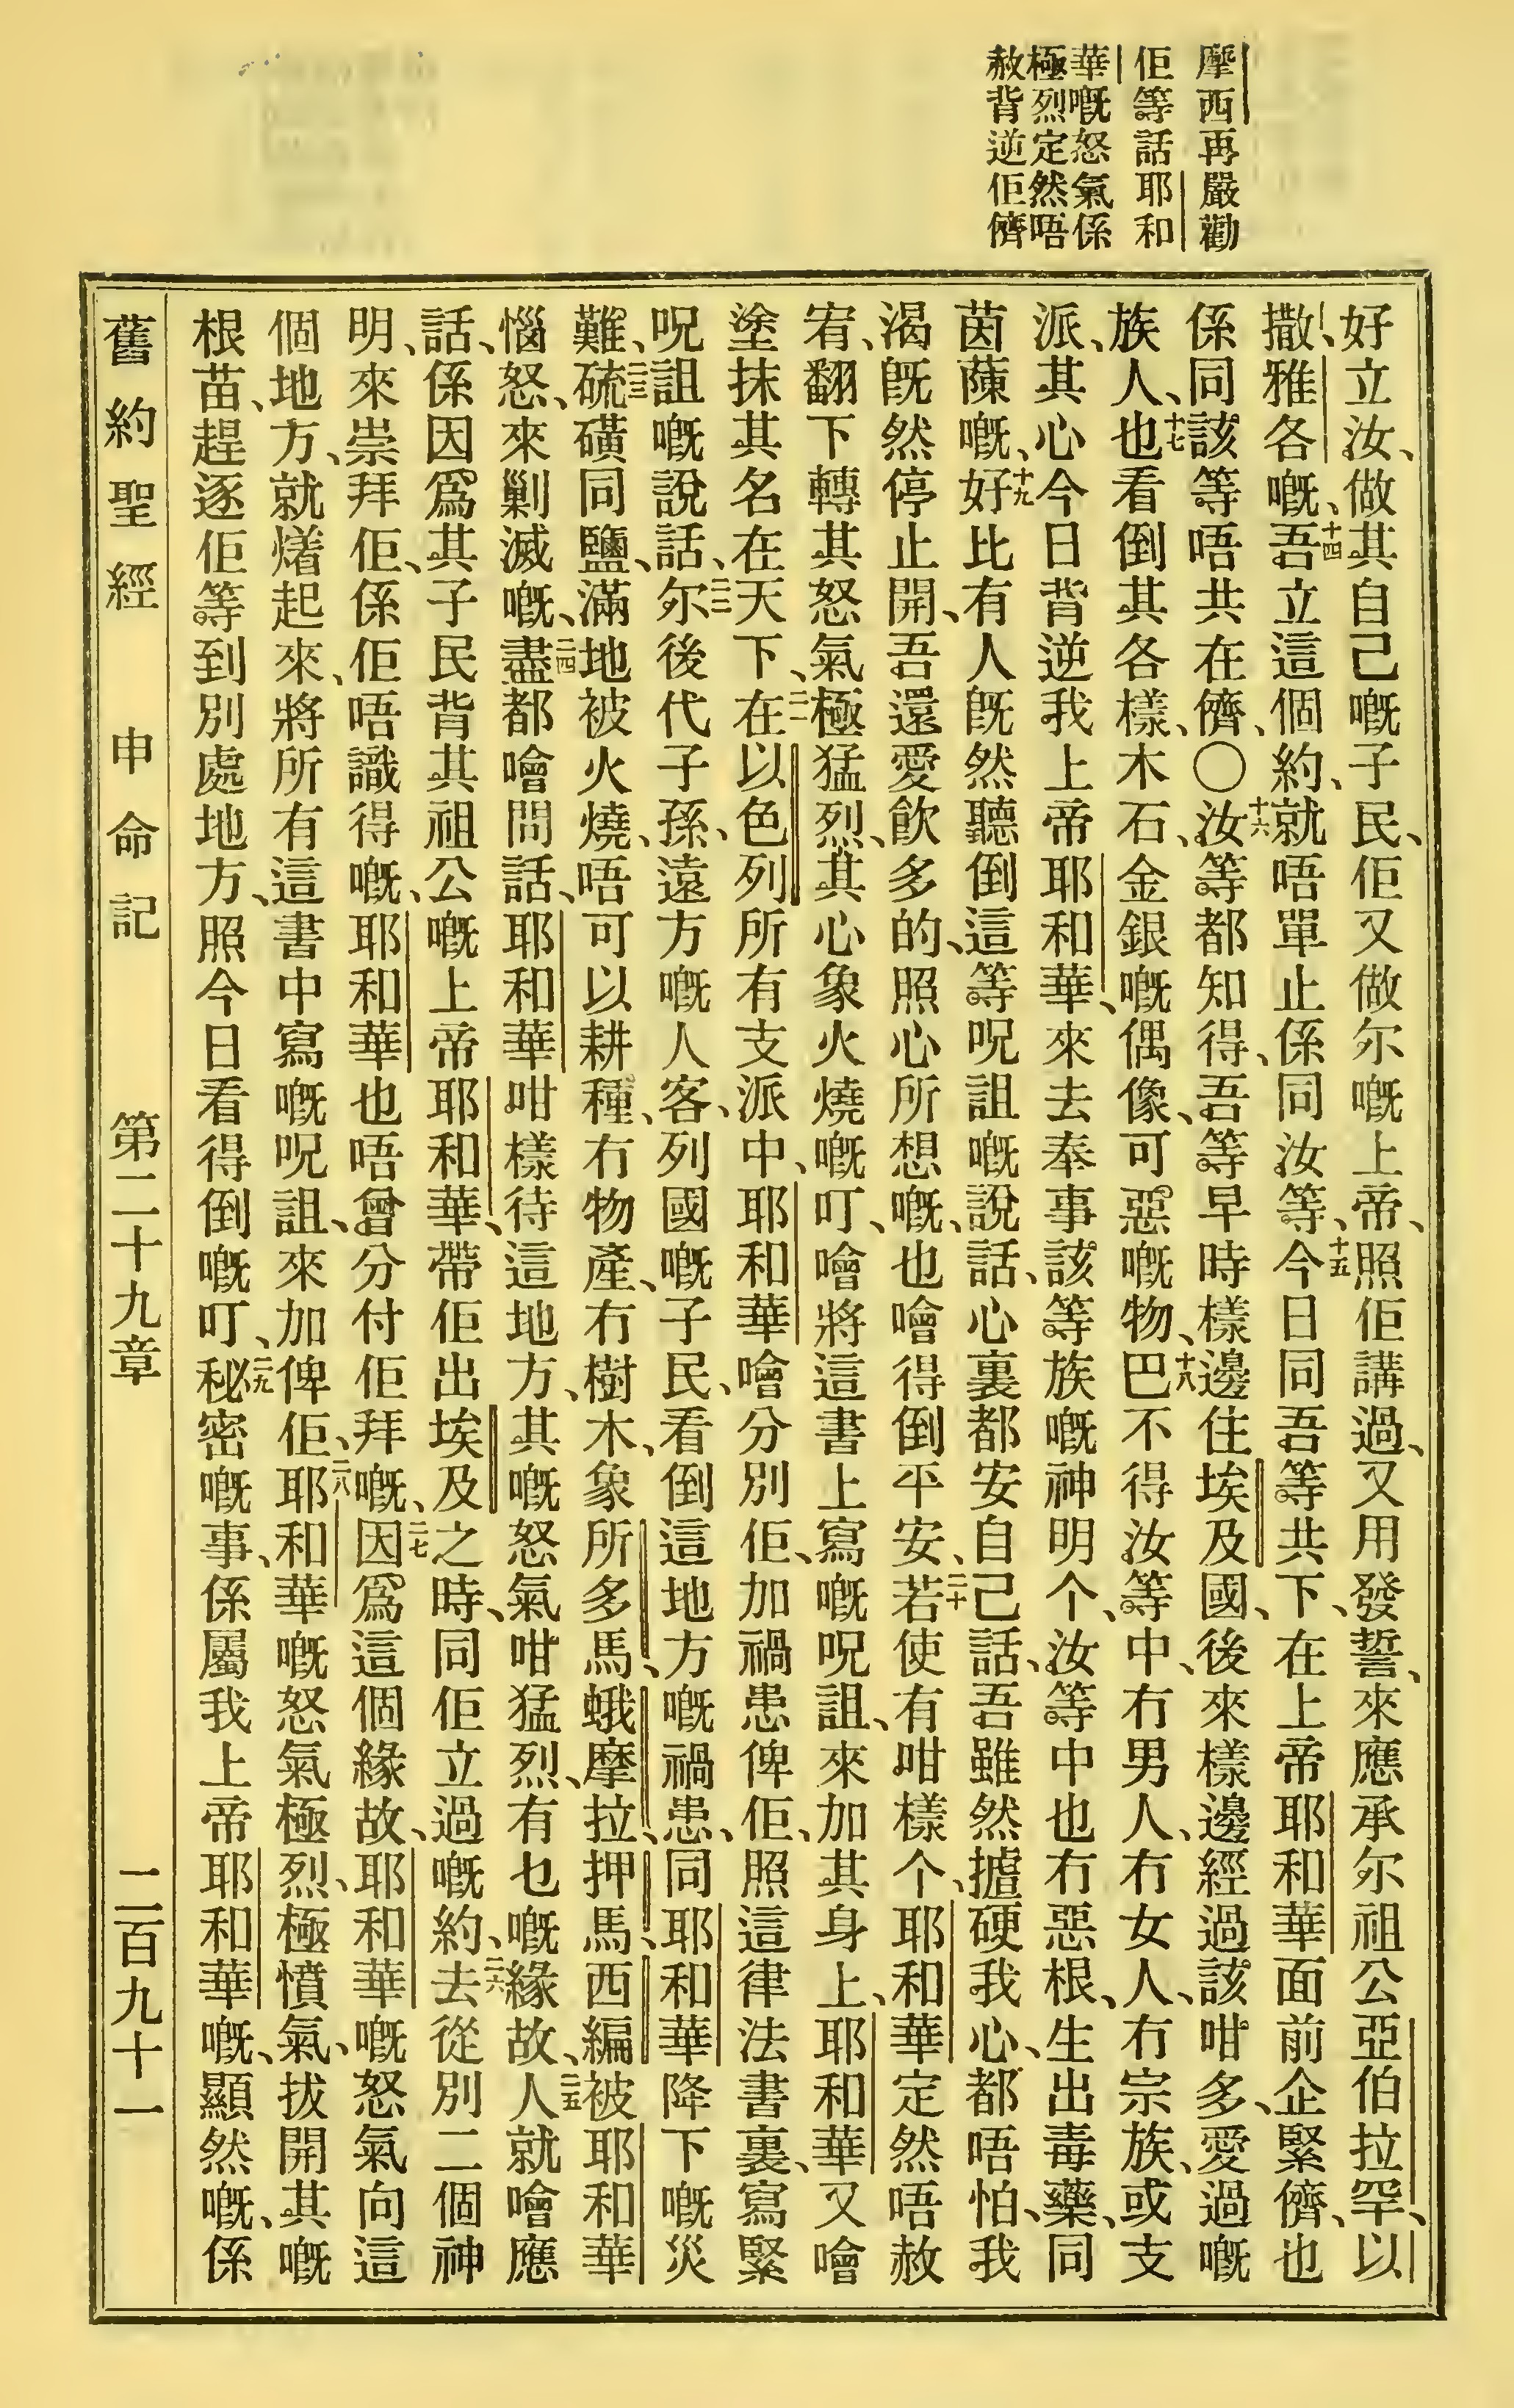 摩西再嚴勸
佢等話耶和
華嘅怒氣係
極烈定然唔
赦背逆佢儕
好立汝、做其自己嘅子民、佢又做尔嘅上帝、照佢講過、又用發誓、來應承尔祖公亞伯拉罕、以
撒、雅各嘅、十四吾立這個約、就唔單止係同汝等、十五今日同吾等共下、在上帝耶和華面前企緊儕、也
係同該等唔共在儕、〇十六汝等都知得、吾等早時樣邊住埃及國、後來樣邊經過該咁多、愛過嘅
族人、十七也看倒其各樣、木石、金銀嘅偶像、可惡嘅物、十八巴不得汝等中、冇男人、冇女人、冇宗族、或支
派、其心今日背逆我上帝耶和華、來去奉事該等族嘅神明个、汝等中也冇惡根、生出毒藥、同
茵蔯嘅、十九好比有人既然聽倒這等呪詛嘅說話、心裏都安自己話、吾雖然攎硬我心、都唔怕、我
渴既然停止開、吾還愛飲多的、照心所想嘅、也噲得倒平安、二十若使有咁樣个、耶和華定然唔赦
宥、翻下轉其怒氣極猛烈、其心象火燒嘅叮、噲將這書上寫嘅呪詛、來加其身上、耶和華又噲
塗抹其名在天下、二一在以色列所有支派中、耶和華噲分別佢、加禍患俾佢、照這律法書裏、寫緊
呪詛嘅說話、二二尔後代子孫、遠方嘅人客、列國嘅子民、看倒這地方嘅禍患、同耶和華降下嘅災
難、二三硫磺同鹽、滿地被火燒、唔可以耕種、冇物產、冇樹木、象所多馬、蛾摩拉、押馬、西編被耶和華
惱怒、來剿滅嘅、二四盡都噲問話、耶和華咁樣待這地方、其嘅怒氣咁猛烈、有乜嘅緣故、二五人就噲應
話、係因爲其子民背其祖公嘅上帝耶和華、帶佢出埃及之時、同佢立過嘅約、二六去從別二個神
明、來崇拜佢、係佢唔識得嘅、耶和華也唔曾分付佢拜嘅、二七因爲這個緣故、耶和華嘅怒氣向這
個地方、就㷮起來、將所有這書中寫嘅呪詛、來加俾佢、二八耶和華嘅怒氣極烈、極憤氣、拔開其嘅
根苗、趕逐佢等到別處地方、照今日看得倒嘅叮、二九秘密嘅事、係屬我上帝耶和華嘅、顯然嘅、係
舊約聖經 申命記 第二十九章 二百九十一